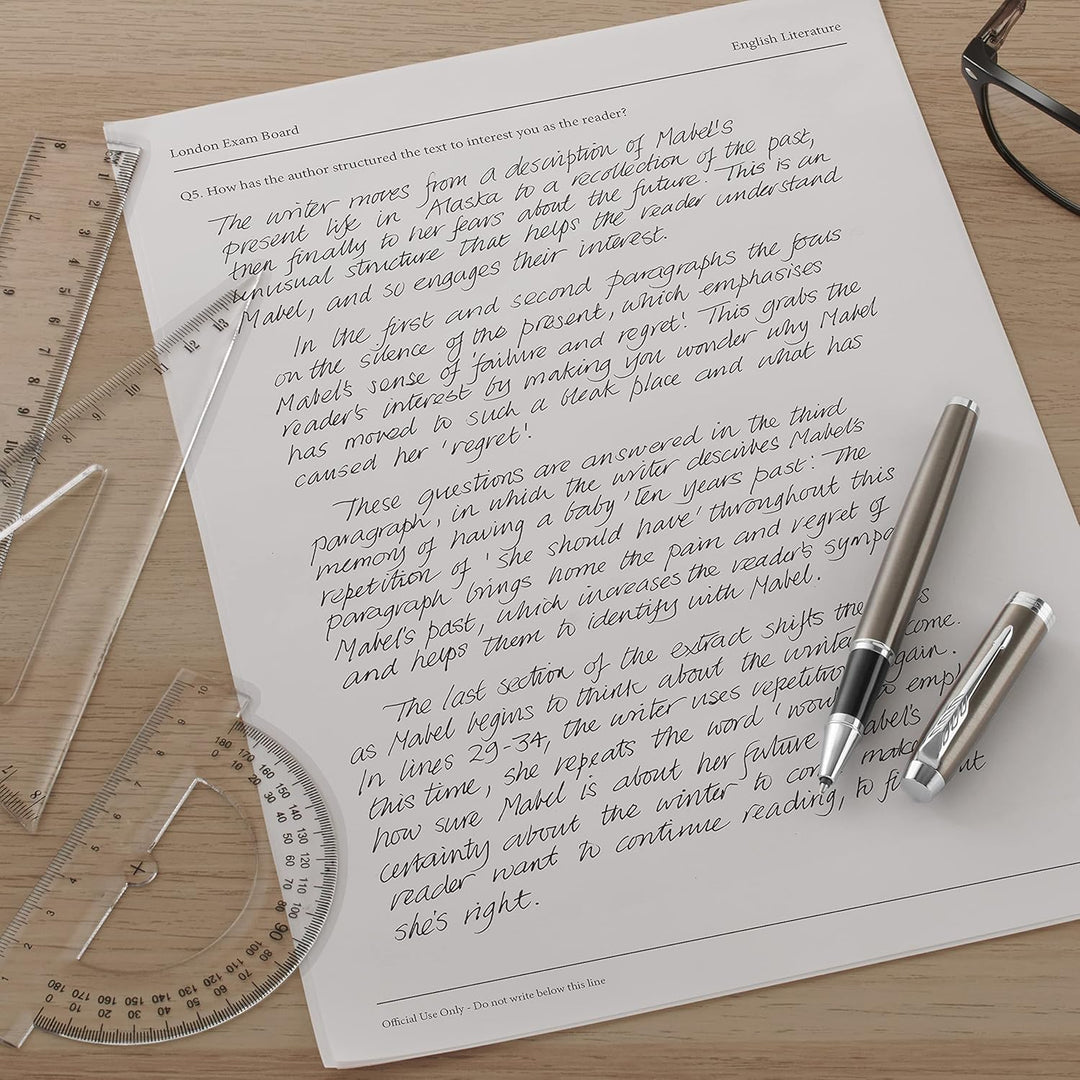 English Literature
London Exam Board
Q5. How has the author structured the text to interest you as the reader?
The writer moves from a description of Mabel's
present life in Alaska to a recollection of the past,
then finally to her fears about the future. This is an
unusual structure that helps the reader understand
Mabel, and so engages their interest.
In the first and second paragraphs the focus
on the silence of the present, which emphasises
Mabel's sense of 'failure and regret'. This grabs the
reader's interest by making you wonder why Mabel
has moved to such a bleak place and what has
caused her 'regret'.
These questions are answered in the third
paragraph, in which the writer describes Mabel's
memory of having a baby 'ten years past'. The
repetition of 'she should have' throughout this
paragraph brings home the pain and regret of
Mabel's past, which increases the reader's sympa
and helps them to identify with Mabel.
The last section of the extract shifts the
as Mabel begins to think about the winter come.
In lines 29-34, the writer uses repetition again.
this time, she repeats the word 'wou to emp
how sure Mabel is about her future Mabel's
certainty about the winter to co make
reader want to continue reading, to f ut
she's right.
Official Use Only - Do not write below this line
8 1 7 2 6 3 5 4 8 9 10 11 12 13
180 170 160 150 140 130 120 110 100 90 80 70 60 50 40 30 20 10 0